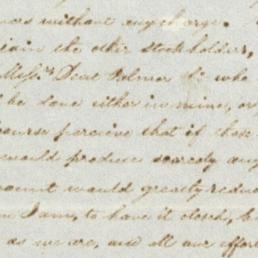 without any charge.
the other stockholders,
Messrs Dent Palmer & Co who
be done either in mine, or
course percieve that if then
would produce scarcely any
amount would greatly reduce
I am, to have it closed, bu
as we are, and all our effort